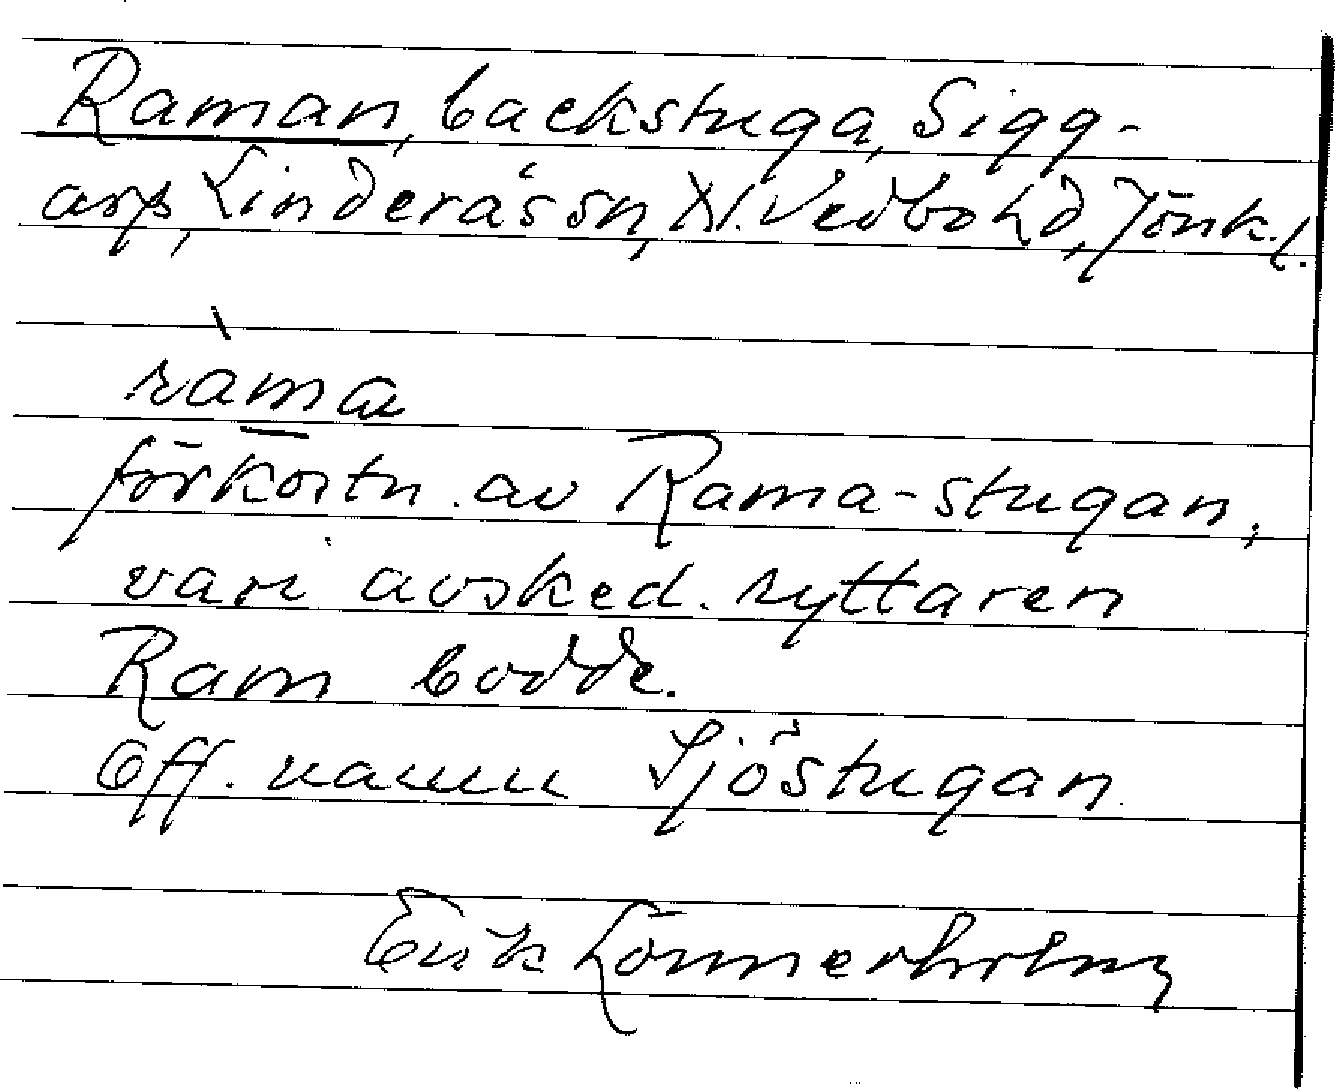 Raman, backstuga, Sigg-
arp, Linderås sn, N. Vedbo hd, Jönk. l.
ràma
förkortn. av Rama-stugan,
vari avsked. ryttaren
Ram bodde.
Off. namn Sjöstugan
Erik Lönnerholm